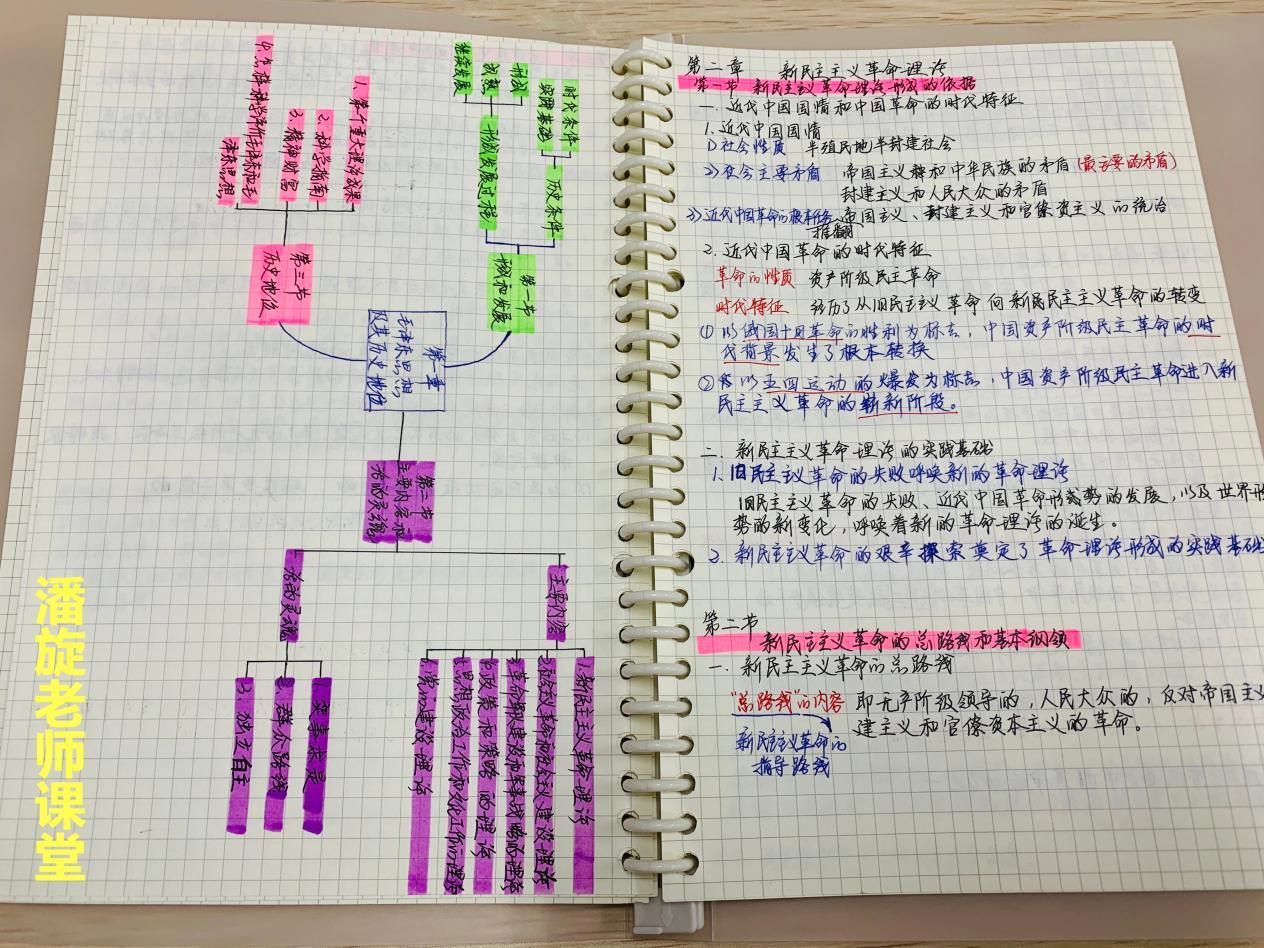 第一章
毛泽东思想
及其历史地位
第一节
形成和发展
历史条件
时代条件
实践基础
形成发展过程
形成
成熟
继续发展
第二节
主要内容和
活的灵魂
主要内容
1.新民主主义革命理论
2.社会主义革命和社会主义建设理论
3.革命军队建设和军事战略的理论
4.政策和策略的理论
5.思想政治工作和文化工作的理论
6.党的建设理论
活的灵魂
1.实事求是
2.群众路线
3.独立自主
第三节
历史地位
1.第一个重大理论成果
2.科学指南
3.精神财富
泽东思想
潘旋老师课堂
第二章 新民主主义革命理论
第一节 新民主主义革命理论形成的依据
一.近代中国国情和中国革命的时代特征
1.近代中国国情
1)社会性质 半殖民地半封建社会
2)社会主要矛盾 帝国主义和中华民族的矛盾(最主要的矛盾)
封建主义和人民大众的矛盾
3)近代中国革命的根本任务 推翻帝国主义、封建主义和官僚资主义的统治
2.近代中国革命的时代特征
革命的性质 资产阶级民主革命
时代特征 经历了从旧民主主义革命向新民主主义革命的转变
①以俄国十月革命的胜利为标志,中国资产阶级民主革命的时
代背景发生了根本转换
②以五四运动的爆发为标志,中国资产阶级民主革命进入新
民主主义革命的崭新阶段。
二.新民主主义革命理论的实践基础
1.旧民主主义革命的失败呼唤新的革命理论
旧民主主义革命的失败、近代中国革命形势的发展,以及世界形
势的新变化,呼唤着新的革命理论的诞生。
2.新民主主义革命的艰辛探索奠定了革命理论形成的实践基础
第二节
新民主主义革命的总路线和基本纲领
一.新民主主义革命的总路线
"总路线"的内容 即无产阶级领导的,人民大众的,反对帝国主
建主义和官僚资本主义的革命。
新民主主义革命的
指导路线